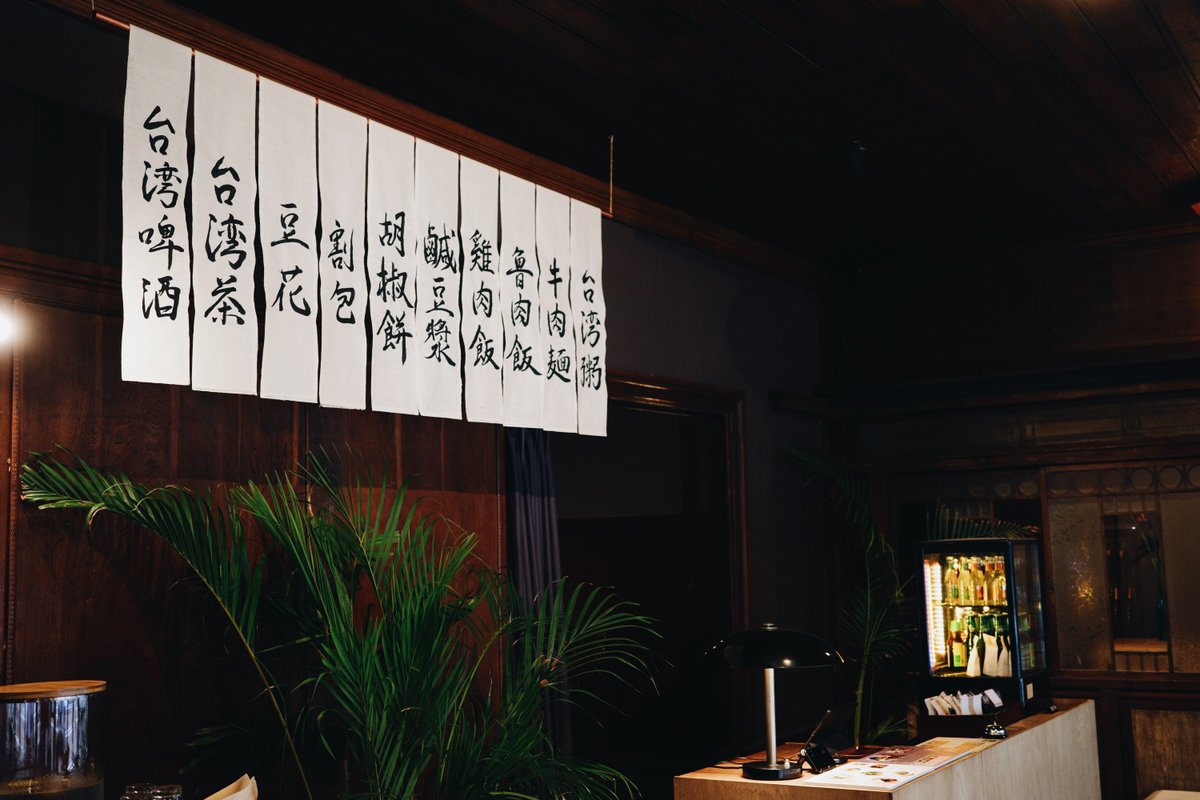 台湾粥
牛肉麺
魯肉飯
雞肉飯
鹹豆漿
胡椒餅
割包
豆花
台湾茶
台湾啤酒